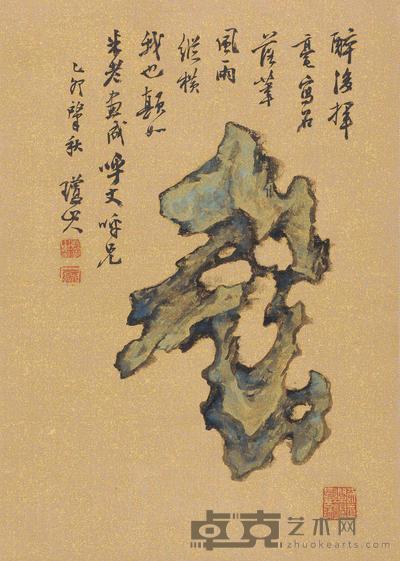 醉後揮
毫寫石
落筆
風雨
縱橫
我也顛如
米老畫成呼丈呼兄
己卯肇秋
卓克艺术网
www.zhuokearts.com